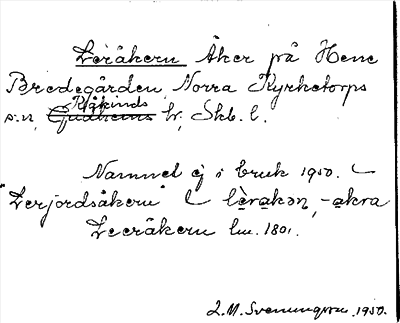 Leråkern Åker på Hene
Bredegården, Norra Kyrketorps
s:n, Kåkinds Gudhems h; Skb. l.
Namnet ej i bruk 1950. –
"Lerjordsåkern" l lèrakən, -akra
Leeråkern lm. 1801.
L.M. Svenungsson. 1950.